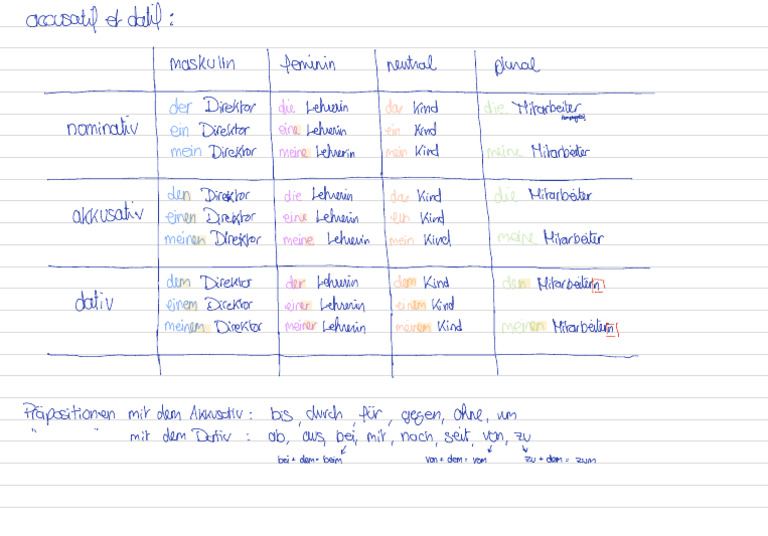 accusatif et datif :
maskulin feminin neutral plural
der Direktor die Lehrerin das Kind die Mitarbeiter
nominativ ein Direktor eine Lehrerin ein Kind
mein Direktor meine Lehrerin mein Kind meine Mitarbeiter
den Direktor die Lehrerin das Kind die Mitarbeiter
akkusativ einen Direktor eine Lehrerin ein Kind
meinen Direktor meine Lehrerin mein Kind meine Mitarbeiter
dem Direktor der Lehrerin dem Kind den Mitarbeitern
dativ einem Direktor einer Lehrerin einem Kind
meinem Direktor meiner Lehrerin meinem Kind meinen Mitarbeitern
Präpositionen mit dem Akkusativ : bis, durch, für, gegen, ohne, um
" " mit dem Dativ : ab, aus, bei, mit, nach, seit, von, zu
bei + dem = beim von + dem = vom zu + dem = zum